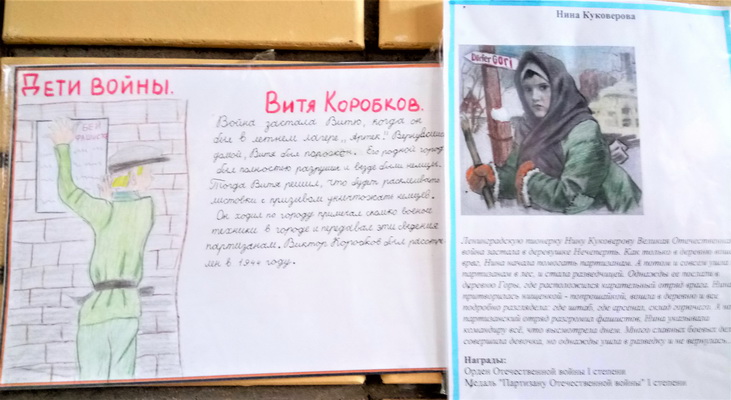 Дети войны.
Бей
фашистов
Витя Коробков.
Война застала Витю, когда он
был в летнем лагере „Артек". Вернувшись
домой, Витя был поражён. Его родной город
был полностью разрушен и везде были немцы.
Тогда Витя решил, что будет расклеивать
листовки с призывом уничтожать немцев.
Он ходил по городу примечал сколько военной
техники в городе и передавал эти сведения
партизанам. Виктор Коробков был расстре-
лен в 1944 году.
Нина Куковерова
Dorfer GORI
Ленинградскую пионерку Нину Куковерову Великая Отечественная
война застала в деревушке Нечеперть. Как только в деревню вошёл
враг, Нина начала помогать партизанам. А потом и совсем ушла к
партизанам в лес, и стала разведчицей. Однажды ее послали в
деревню Горы, где расположился карательный отряд врага. Нина
притворилась нищенкой - попрошайкой, вошла в деревню и все
подробно разглядела: где штаб, где арсенал, склад горючего. А
партизанский отряд разгромил фашистов, Нина указывала
командиру всё, что высмотрела днем. Много славных боевых дел
совершила девочка, но однажды ушла в разведку и не вернулась.
Награды:
Орден Отечественной войны I степени
Медаль "Партизану Отечественной войны" I степени